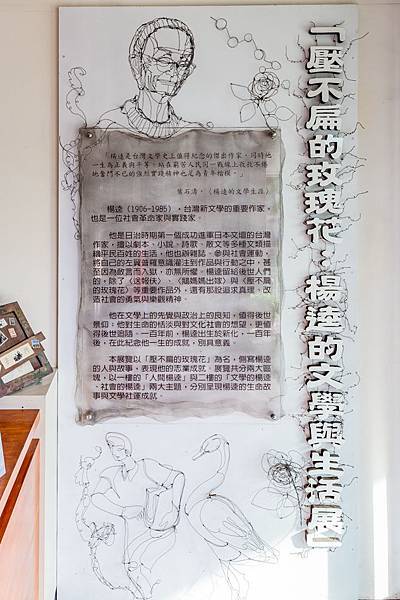 「壓不扁的玫瑰花：楊逵的文學與生活展」
「楊逵是台灣文學史上值得紀念的傑出作家，同時他
一生為正義與平等，站在窮苦人民同一戰線上孜孜不倦
地奮鬥不已的強烈實踐精神也足為青年楷模。」
葉石濤，〈楊逵的文學生涯〉
楊逵（1906-1985），台灣新文學的重要作家，
也是一位社會革命家與實踐家。
他是日治時期第一個成功進軍日本文壇的台灣
作家，擅以劇本、小說、詩歌、散文等多種文類描
繪平民百姓的生活，他也辦雜誌、參與社會運動，
將自己的左翼普羅意識灌注到作品與行動之中，甚
至因為敢言而入獄，亦無所懼。楊逵留給後世人們
的，除了〈送報伕〉、〈鵝媽媽出嫁〉與〈壓不扁
的玫瑰花〉等重要作品外，還有那股追求真理、改
造社會的勇氣與樂觀精神。
他在文學上的先覺與政治上的良知，值得後世
景仰，他對生命的恬淡與對文化社會的想望，更值
得後世追隨。一百年前，楊逵出生於新化，一百年
後，在此紀念他一生的成就，別具意義。
本展覽以「壓不扁的玫瑰花」為名，側寫楊逵
的人與故事，表現他的志業成就。展覽共分兩大區
塊，以一樓的「人間楊逵」與二樓的「文學的楊逵
、社會的楊逵」兩大主題，分別呈現楊逵的生命故
事與文學社運成就。